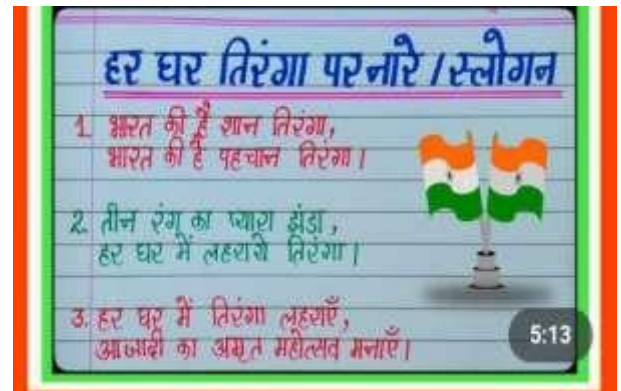 हर घर तिरंगा पर नारे / स्लोगन
1. भारत की है शान तिरंगा,
भारत की है पहचान तिरंगा।
2. तीन रंग का प्यारा झंडा,
हर घर में लहराये तिरंगा।
3. हर घर में तिरंगा लहराएँ,
आजादी का अमृत महोत्सव मनाएँ।
5:13